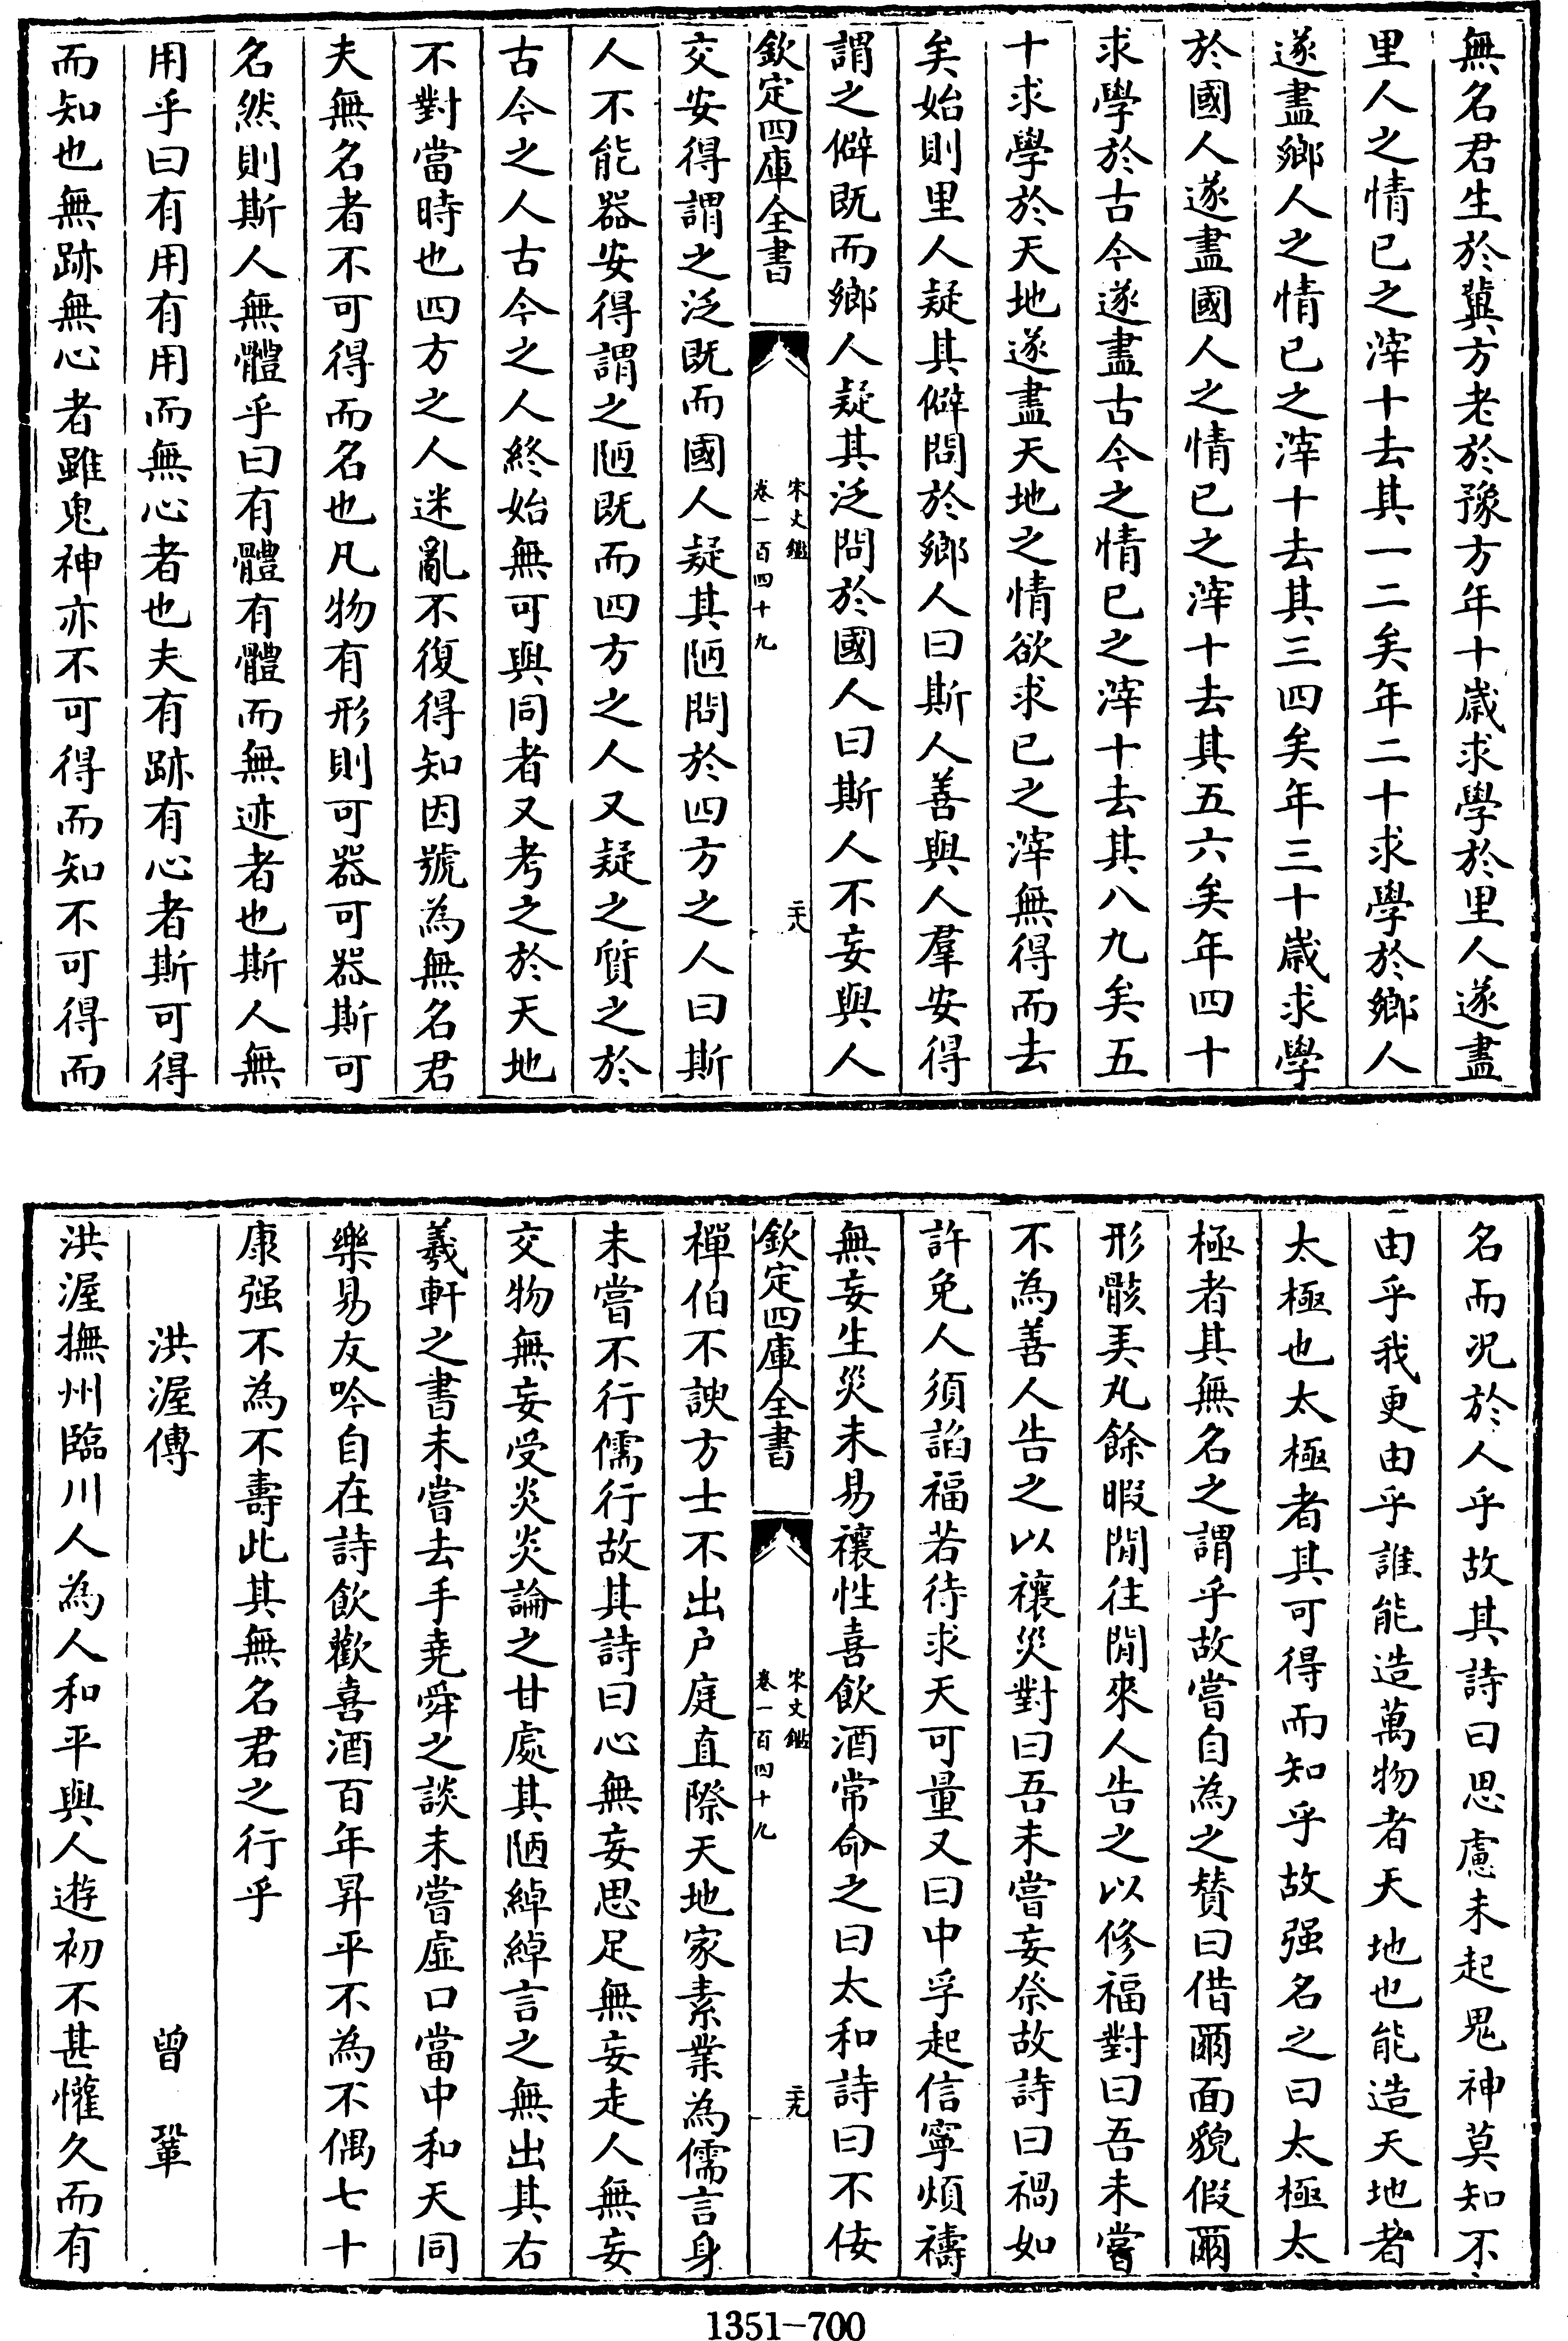 無名君生於冀方老於豫方年十歲求學於里人遂盡
里人之情已之滓十去其一二矣年二十求學於鄉人
遂盡鄉人之情已之滓十去其三四矣年三十歲求學
於國人遂盡國人之情已之滓十去其五六矣年四十
求學於古今遂盡古今之情已之滓十去其八九矣五
十求學於天地遂盡天地之情欲求已之滓無得而去
矣始則里人疑其僻問於鄉人曰斯人善與人羣安得
謂之僻既而鄉人疑其泛問於國人曰斯人不妄與人
欽定四庫全書
宋文鑑
卷一百四十九
二十八
交安得謂之泛既而國人疑其陋問於四方之人曰斯
人不能器安得謂之陋既而四方之人又疑之質之於
古今之人古今之人終始無可與同者又考之於天地
不對當時也四方之人迷亂不復得知因號為無名君
夫無名者不可得而名也凡物有形則可器可器斯可
名然則斯人無體乎曰有體有體而無迹者也斯人無
用乎曰有用有用而無心者也夫有跡有心者斯可得
而知也無跡無心者雖鬼神亦不可得而知不可得而
名而况於人乎故其詩曰思慮未起鬼神莫知不
由乎我更由乎誰能造萬物者天地也能造天地者
太極也太極者其可得而知乎故强名之曰太極太
極者其無名之謂乎故嘗自為之贊曰借爾面貌假爾
形骸弄丸餘暇閒往閒來人告之以修福對曰吾未嘗
不為善人告之以禳災對曰吾未嘗妄祭故詩曰禍如
許免人須諂福若待求天可量又曰中孚起信寧煩禱
無妄生災未易禳性喜飲酒常命之曰太和詩曰不佞
欽定四庫全書
宋文鑑
卷一百四十九
二十九
禪伯不諛方士不出户庭直際天地家素業為儒言身
未嘗不行儒行故其詩曰心無妄思足無妄走人無妄
交物無妄受炎炎論之甘處其陋綽綽言之無出其右
羲軒之書未嘗去手堯舜之談未嘗虛口當中和天同
樂易友吟自在詩飲歡喜酒百年昇平不為不偶七十
康强不為不壽此其無名君之行乎
洪渥傳　曾鞏
洪渥撫州臨川人為人和平與人遊初不甚懽久而有
1351-700